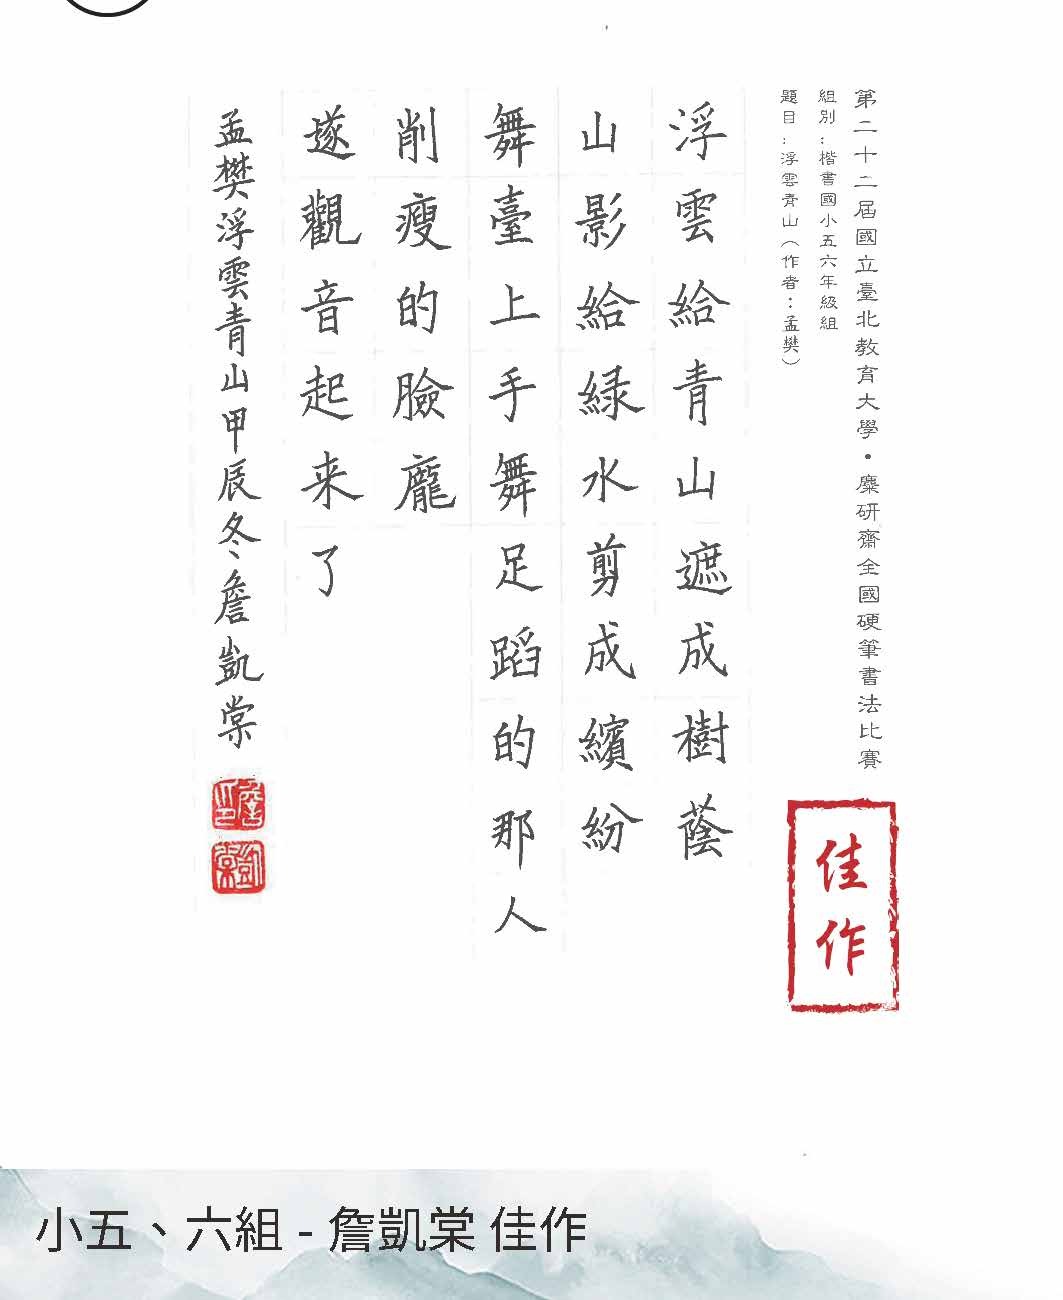 第二十二屆國立臺北教育大學・麋研齋全國硬筆書法比賽
組別：楷書國小五六年級組
題目：浮雲青山（作者：孟樊）
浮雲給青山遮成樹蔭
山影給綠水剪成繽紛
舞臺上手舞足蹈的那人
削瘦的臉龐
遂觀音起来了
孟樊浮雲青山甲辰冬詹凱棠
詹印
凱棠
佳作
小五、六組 - 詹凱棠 佳作